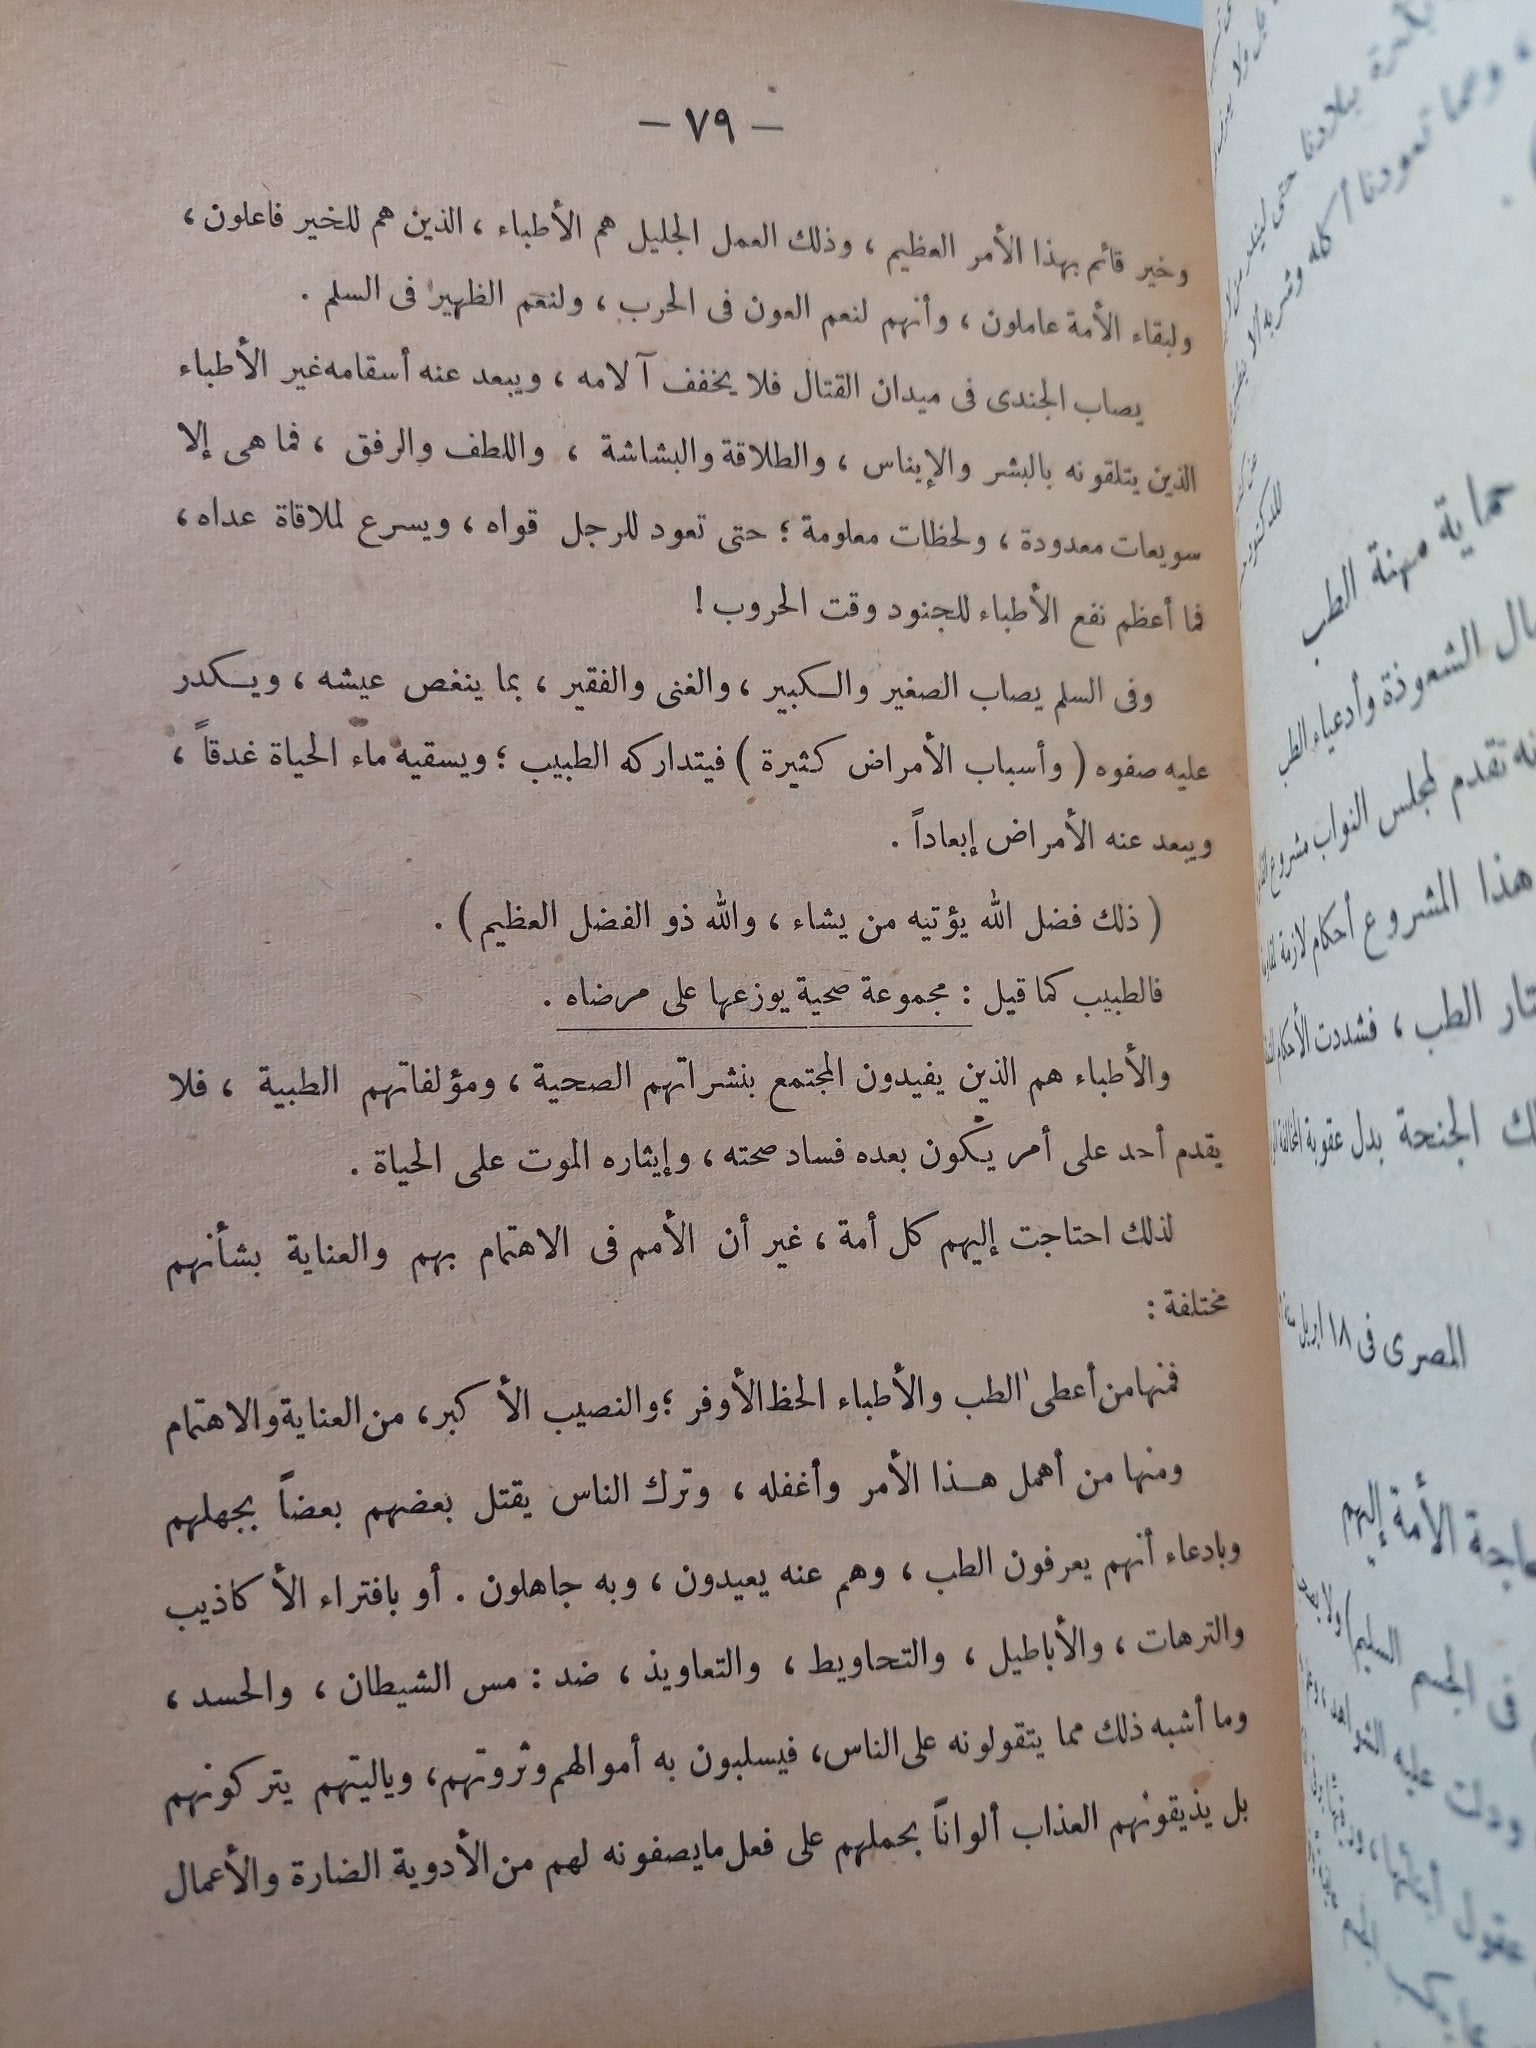 — ٧٩ —
وخير قائم بهذا الأمر العظيم ، وذلك العمل الجليل هم الأطباء ، الذين هم للخير فاعلون ،
ولبقاء الأمة عاملون ، وأنهم لنعم العون فى الحرب ، ولنعم الظهير فى السلم .
يصاب الجندى فى ميدان القتال فلا يخفف آلامه ، ويبعد عنه أسقامه غير الأطباء
الذين يتلقونه بالبشر والإيناس ، والطلاقة والبشاشة ، واللطف والرفق ، فما هى إلا
سويعات معدودة ، ولحظات معلومة ؛ حتى تعود للرجل قواه ، ويسرع لملاقاة عداه ،
فما أعظم نفع الأطباء للجنود وقت الحروب !
وفى السلم يصاب الصغير والكبير ، والغنى والفقير ، بما ينغص عيشه ، ويكدر
عليه صفوه ( وأسباب الأمراض كثيرة ) فيتداركه الطبيب ؛ ويسقيه ماء الحياة غدقاً ،
ويبعد عنه الأمراض إبعاداً .
( ذلك فضل الله يؤتيه من يشاء ، والله ذو الفضل العظيم ) .
فالطبيب كما قيل : مجموعة صحية يوزعها على مرضاه .
والأطباء هم الذين يفيدون المجتمع بنشراتهم الصحية ، ومؤلفاتهم الطبية ، فلا
يقدم أحد على أمر يكون بعده فساد صحته ، وإيثاره الموت على الحياة .
لذلك احتاجت إليهم كل أمة ، غير أن الأمم فى الاهتمام بهم والعناية بشأنهم
مختلفة :
فمنها من أعطى الطب والأطباء الحظ الأوفر ؛ والنصيب الأكبر ، من العناية والاهتمام
ومنها من أهمل هذا الأمر وأغفله ، وترك الناس يقتل بعضهم بعضاً بجهلهم
وبادعاء أنهم يعرفون الطب ، وهم عنه يعيدون ، وبه جاهلون . أو بافتراء الأكاذيب
والترهات ، والأباطيل ، والتحاويط ، والتعاويذ ، ضد : مس الشيطان ، والحسد ،
وما أشبه ذلك مما يتقولونه على الناس ، فيسلبون به أموالهم وثروتهم ، وياليتهم يتركونهم
بل يذيقونهم العذاب ألواناً بحملهم على فعل مايصفونه لهم من الأدوية الضارة والأعمال
بلادنا حتى ليندر من
، ومما تعودنا أكله وشربه ألا
حماية مهنة الطب
الشعوذة وأدعياء الطب
تقدم لمجلس النواب مشروع
هذا المشروع أحكام لازمة
الطب ، فشددت الأحكام
الجنحة بدل عقوبة المخالفة
المصرى فى ١٨ ابريل سنة
حاجة الأمة إليهم
فى الجسم السليم ) ولا
ودلت عليه
عقول